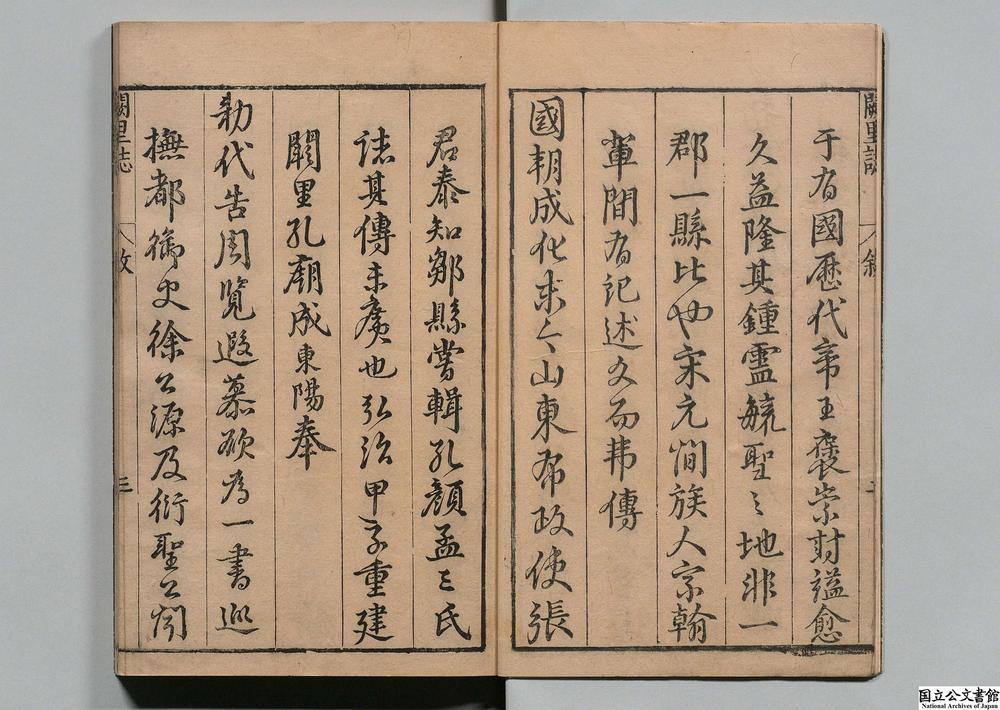 于有國歷代帝王褒崇封謚愈
久益隆其鍾靈毓聖之地非一
郡一縣比也宋元間族人宗翰
輩間有記述久而弗傳
國朝成化末今山東布政使張
君泰知鄒縣嘗輯孔顏孟三氏
誌其傳未廣也弘治甲子重建
闕里孔廟成東陽奉
勅代告周覽遐慕欲為一書巡
撫都御史徐公源及衍聖公聞
闕里誌
叙
闕里志
三
国立公文書館
National Archives of Japan